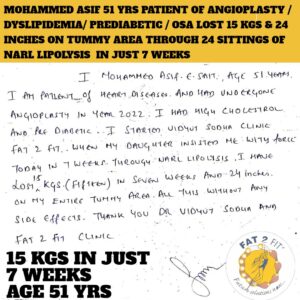 MOHAMMED ASIF 51 YRS PATIENT OF ANGIOPLASTY /
DYSLIPIDEMIA/ PREDIABETIC / OSA LOST 15 KGS & 24
INCHES ON TUMMY AREA THROUGH 24 SITTINGS OF
NARL LIPOLYSIS IN JUST 7 WEEKS
I MOHAMMED ASIF. E. SAIT. AGE 51 YEARS.
I AM PATIENT OF HEART DISEASES. AND HAD UNDERGONE
ANGIOPLASTY IN YEAR 2022. I HAD HIGH CHOLETROL
AND PRE DIABETIC. I STARTED VIDYUT SODHA CLINIC
FAT 2 FIT. WHEN MY DAUGHTER INSISTED ME WITH FORCE
TODAY IN 7 WEEKS. THROUGH NARL LIPOLYSIS. I HAVE
LOST 15 KGS. (FIFTEEN) IN SEVEN WEEKS AND 24 INCHES.
ON MY ENTIRE TUMMY AREA. ALL THIS WITHOUT ANY
SIDE EFFECTS. THANK YOU DR VIDYUT SODHA AND
FAT 2 FIT CLINIC
15 KGS IN JUST
7 WEEKS
AGE 51 YRS
FAT 2 FIT